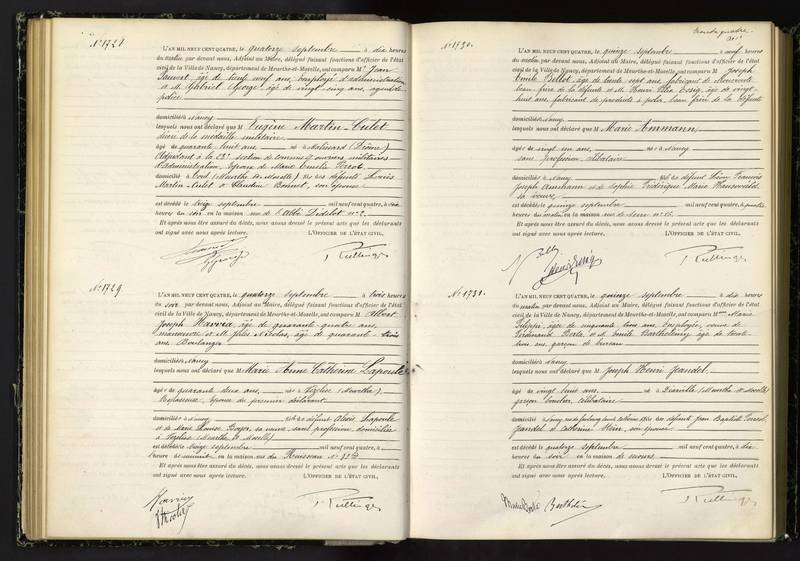 N° 1728
L'AN MIL NEUF CENT QUATRE, le quatorze septembre à dix heures
du matin par devant nous, Adjoint au Maire, délégué faisant fonctions d'officier de l'état
civil de la Ville de Nancy, département de Meurthe-et-Moselle, ont comparu M. Jean
âgé de trente neuf ans, employé d'administration
et M. Gabriel George, âgé de vingt-cinq ans, agent de
police
domiciliés à Nancy
lesquels nous ont déclaré que M Eugène Martin-Culet
de la médaille militaire
âgé de quarante huit ans né à Malissard (Drôme)
Adjudant à la 23e section de commis et ouvriers militaires
d'administration, époux de Marie Emélie
domicilié à Toul (Meurthe et Moselle) fils des défunts Louis
Martin-Culet et Claudine Bonnet, son épouse
est décédé le treize septembre mil neuf cent quatre, à six
heures du soir en la maison rue de l'abbé Didelot n° 2.
Et après nous être assuré du décès, nous avons dressé le présent acte que les déclarants
ont signé avec nous après lecture. L'OFFICIER DE L'ÉTAT CIVIL,
N° 1729
L'AN MIL NEUF CENT QUATRE, le quatorze septembre à trois heures
du soir par devant nous, Adjoint au Maire, délégué faisant fonctions d'officier de l'état
civil de la Ville de Nancy, département de Meurthe-et-Moselle, ont comparu M. Albert
Joseph âgé de quarante-quatre ans,
manoeuvre et M. Jules Nicolas, âgé de quarante-trois
ans Boulanger
domiciliés à Nancy
lesquels nous ont déclaré que M Marie Anne Catherine Lapointe
âgée de quarante deux ans, née à Vézelise (Meurthe),
Repasseuse, épouse du premier déclarant
domiciliée à Nancy fille de défunt Alexis Lapointe
et de Marie Louise sa veuve, sans profession, domiciliée
à Vézelise (Meurthe et Moselle)
est décédée le treize septembre mil neuf cent quatre, à
heures de en la maison rue du Ruisseau N°
Et après nous être assuré du décès, nous avons dressé le présent acte que les déclarants
ont signé avec nous après lecture. L'OFFICIER DE L'ÉTAT CIVIL,
N° 1730.
L'AN MIL NEUF CENT QUATRE, le quinze septembre à neuf heures
du matin par devant nous, Adjoint au Maire, délégué faisant fonctions d'officier de l'état
civil de la Ville de Nancy, département de Meurthe-et-Moselle, ont comparu M Joseph
Emile Bellot, âgé de trente sept ans, fabricant de
beau-frère de la défunte et M. Henri Félix Essig, âgé de vingt-
huit ans fabricant de beau frère de la défunte
domiciliés à Nancy
lesquels nous ont déclaré que M Marie Ammann,
âgée de vingt un ans, née à Nancy
sans profession, célibataire
domiciliée à Nancy fille de défunt François
Joseph Ammann et de Sophie Frédérique Marie
sa veuve
est décédée le quinze septembre mil neuf cent quatre, à quatre
heures du matin en la maison rue de
Et après nous être assuré du décès, nous avons dressé le présent acte que les déclarants
ont signé avec nous après lecture. L'OFFICIER DE L'ÉTAT CIVIL,
N° 1731.
L'AN MIL NEUF CENT QUATRE, le quinze septembre à dix heures
du matin par devant nous, Adjoint au Maire, délégué faisant fonctions d'officier de l'état
civil de la Ville de Nancy, département de Meurthe-et-Moselle, ont comparu Mme Marie
âgée de cinquante trois ans, Employée, veuve de
Ferdinand et M. Emile Barthélemy âgé de trente-
trois ans, garçon de bureau
domiciliés à Nancy
lesquels nous ont déclaré que M Joseph Henri Jeandel
âgé de vingt huit ans né à (Meurthe et Moselle)
garçon boucher, célibataire
domicilié à Nancy, fils des défunts Jean Baptiste
Jeandel et Catherine son épouse
est décédé le quatorze septembre mil neuf cent quatre, à dix
heures du soir en la maison de secours
Et après nous être assuré du décès, nous avons dressé le présent acte que les déclarants
ont signé avec nous après lecture. L'OFFICIER DE L'ÉTAT CIVIL,